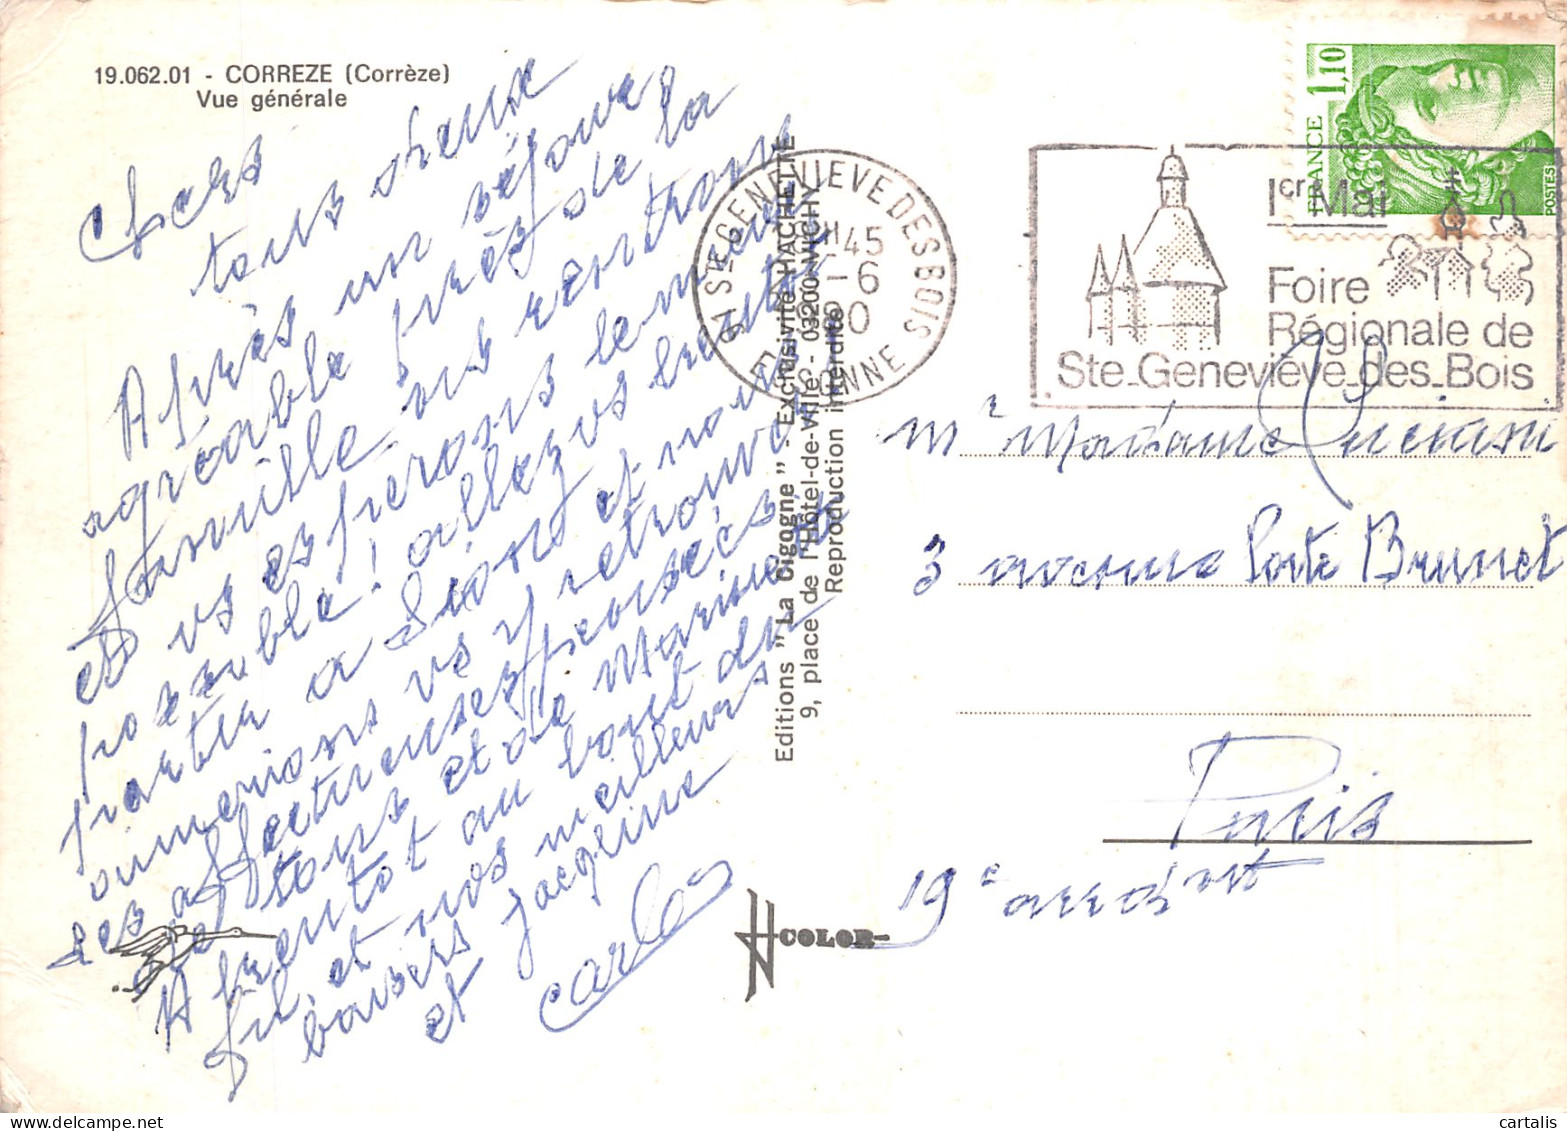 19.062.01 - CORREZE (Corrèze)
Vue générale
Chers
tous deux
Après un séjour
agréable près de la
famille vs rentrons
et vs espérons le mieux
possible! allez vs bientôt
partir a et nous
aimerions vs y retrouver
Ses affectueuses pensées
de tous et de Marine
A bientot au bout du
fil, et nos meilleurs
baisers Jacqline
et Carlos
Editions "La Cigogne" - Exclusivité HACHETTE
9, place de l'Hôtel-de-Ville - 03200 VICHY
Reproduction interdite
COLOR
91 STE GENEVIEVE DES BOIS
ESSONNE
H45
-6
FRANCE 1,10
POSTES
1er Mai
Foire
Régionale de
Ste_Geneviève_des_Bois
Mr Madame
3 avenue Porte Brunet
Paris
19e arrdist
cartalis